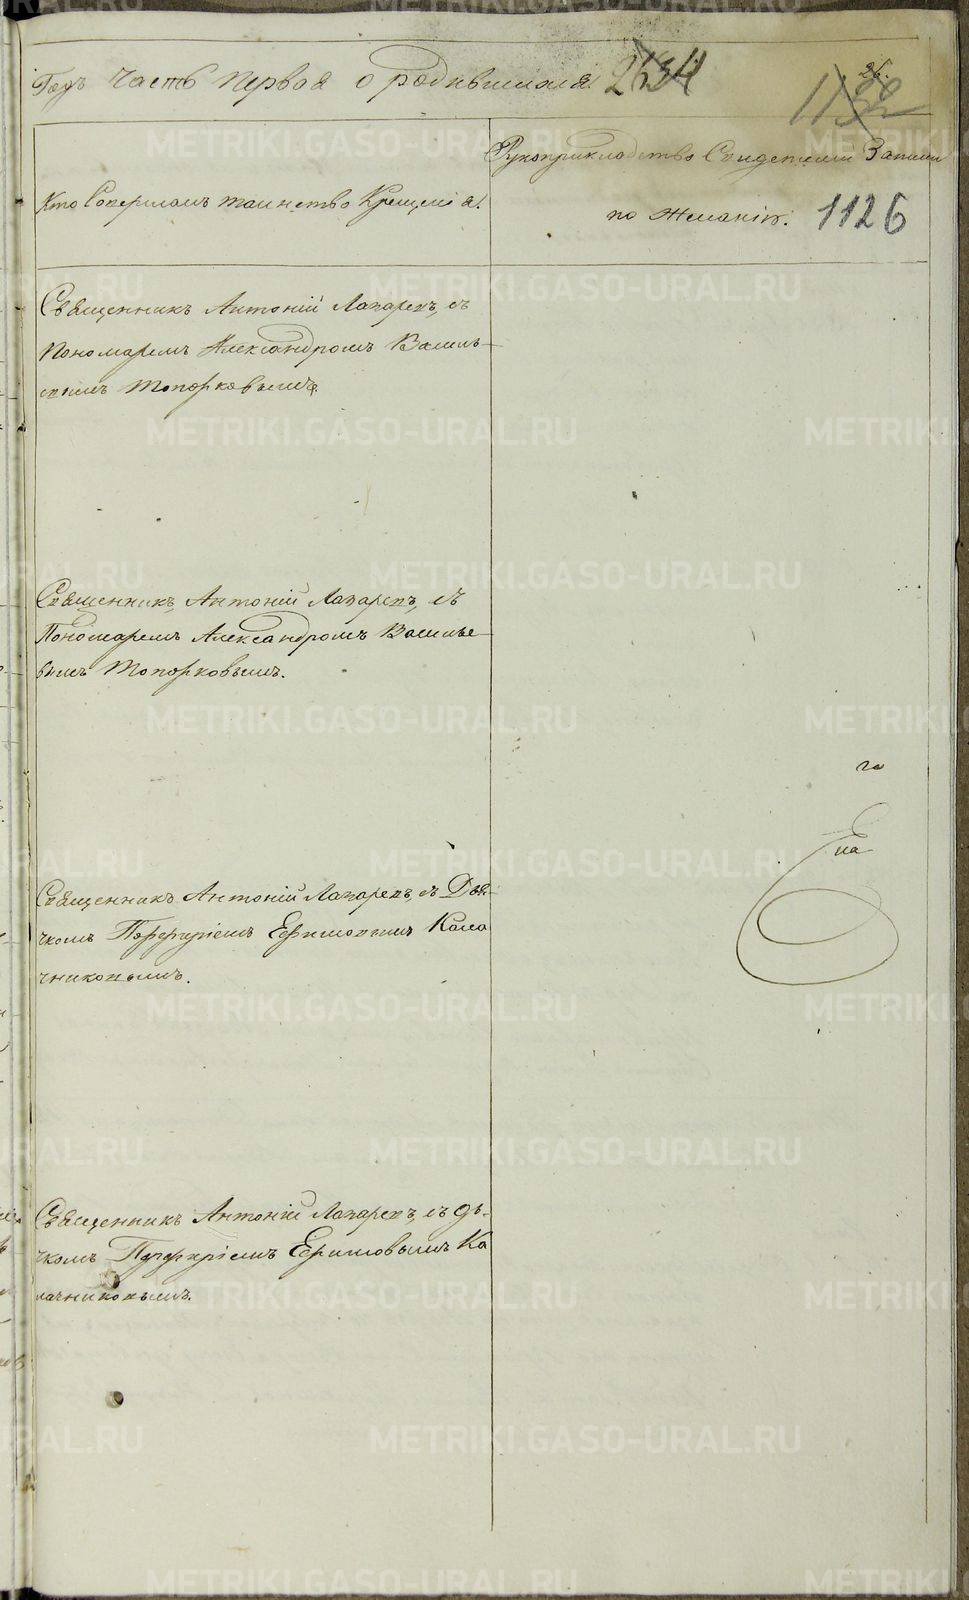 Годъ Часть Первая о родившихся.
26.
Кто Совершалъ таинство Крещенія.
Рукоприкладство Свидетелей Записи
по Желанію.
1126
Священникъ Антоній Лазаревъ, съ
Пономаремъ Александромъ Василь-
евымъ Топорковымъ.
Священникъ Антоній Лазаревъ, съ
Пономаремъ Александромъ Василье-
вымъ Топорковымъ.
го
на
Священникъ Антоній Лазаревъ, съ Дья-
чкомъ Порфиріемъ Ефимовымъ Кала
чниковымъ.
Священникъ Антоній Лазаревъ, съ дь-
чкомъ Порфиріемъ Ефимовымъ Ка
лачниковымъ.
METRIKI.GASO-URAL.RU